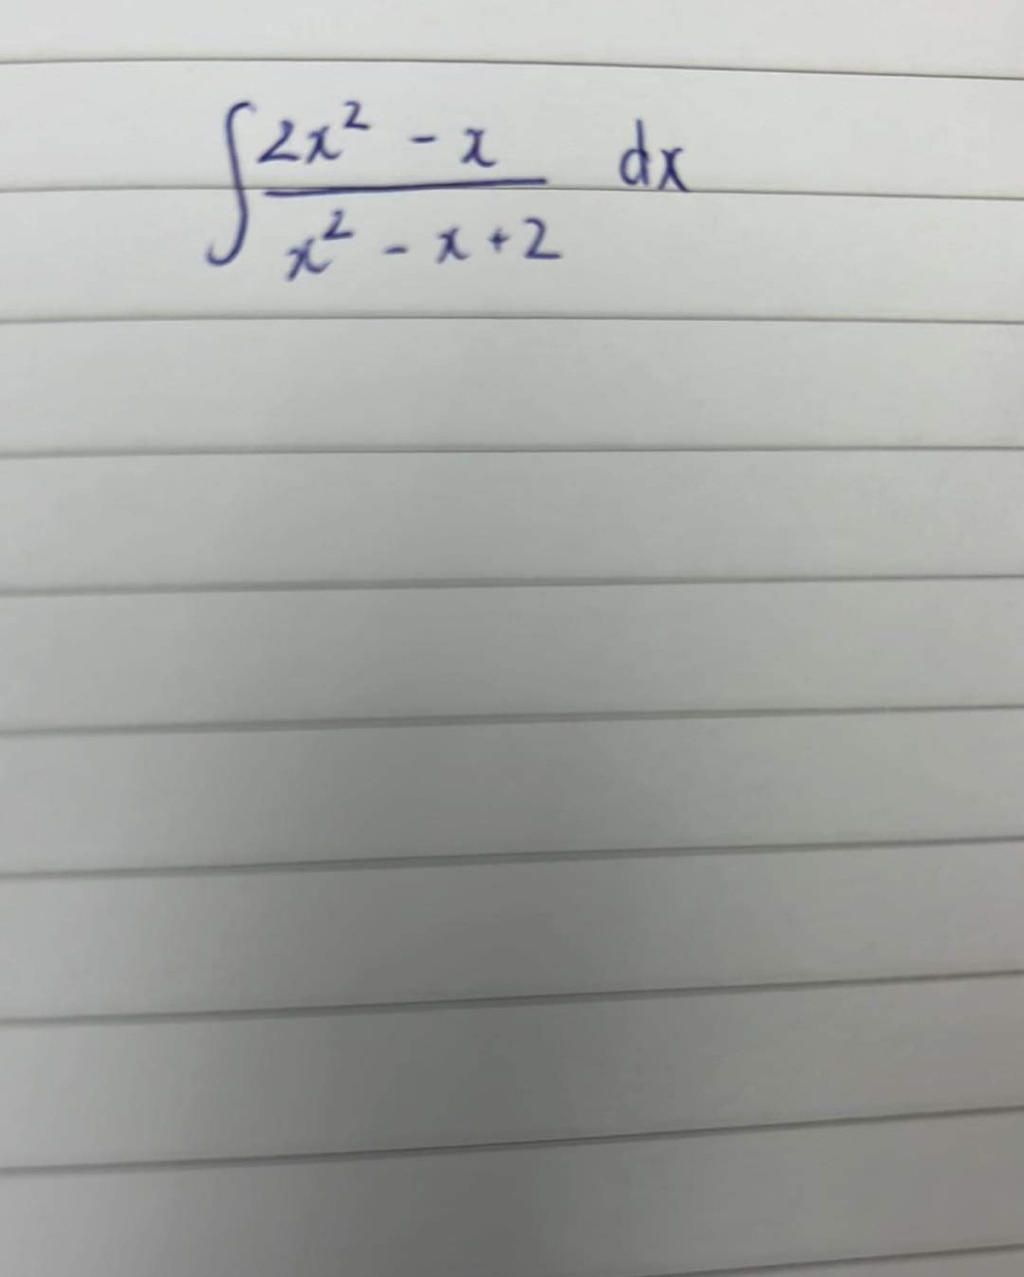 ∫ (2x² - x)/(x² - x + 2) dx